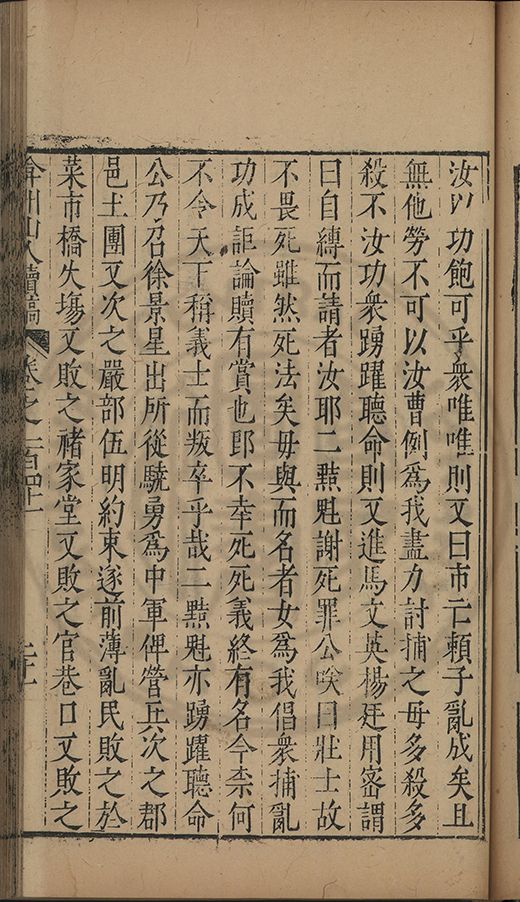 汝以功飽可乎衆唯唯則又曰市亡頼子亂成矣且
無他勞不可以汝曹例爲我盡力討捕之毋多殺多
殺不汝功衆踴躍聽命則又進馬文英楊廷用密謂
曰自縛而請者汝耶二㸃魁謝死罪公唉曰壯士故
不畏死雖然死法矣毋與而名者女爲我倡衆捕亂
功成詎論贖有賞也卽不幸死死義終有名今柰何
不令天下稱義士而叛卒乎哉二㸃魁亦踴躍聽命
公乃召徐景星出所後驍勇爲中軍俾營兵次之郡
邑土團又次之嚴部伍明約束遂前薄亂民敗之於
菜市橋失塲又敗之禇家堂又敗之官巷口又敗之
弇州山人續稿 卷之一百四十一 二十一